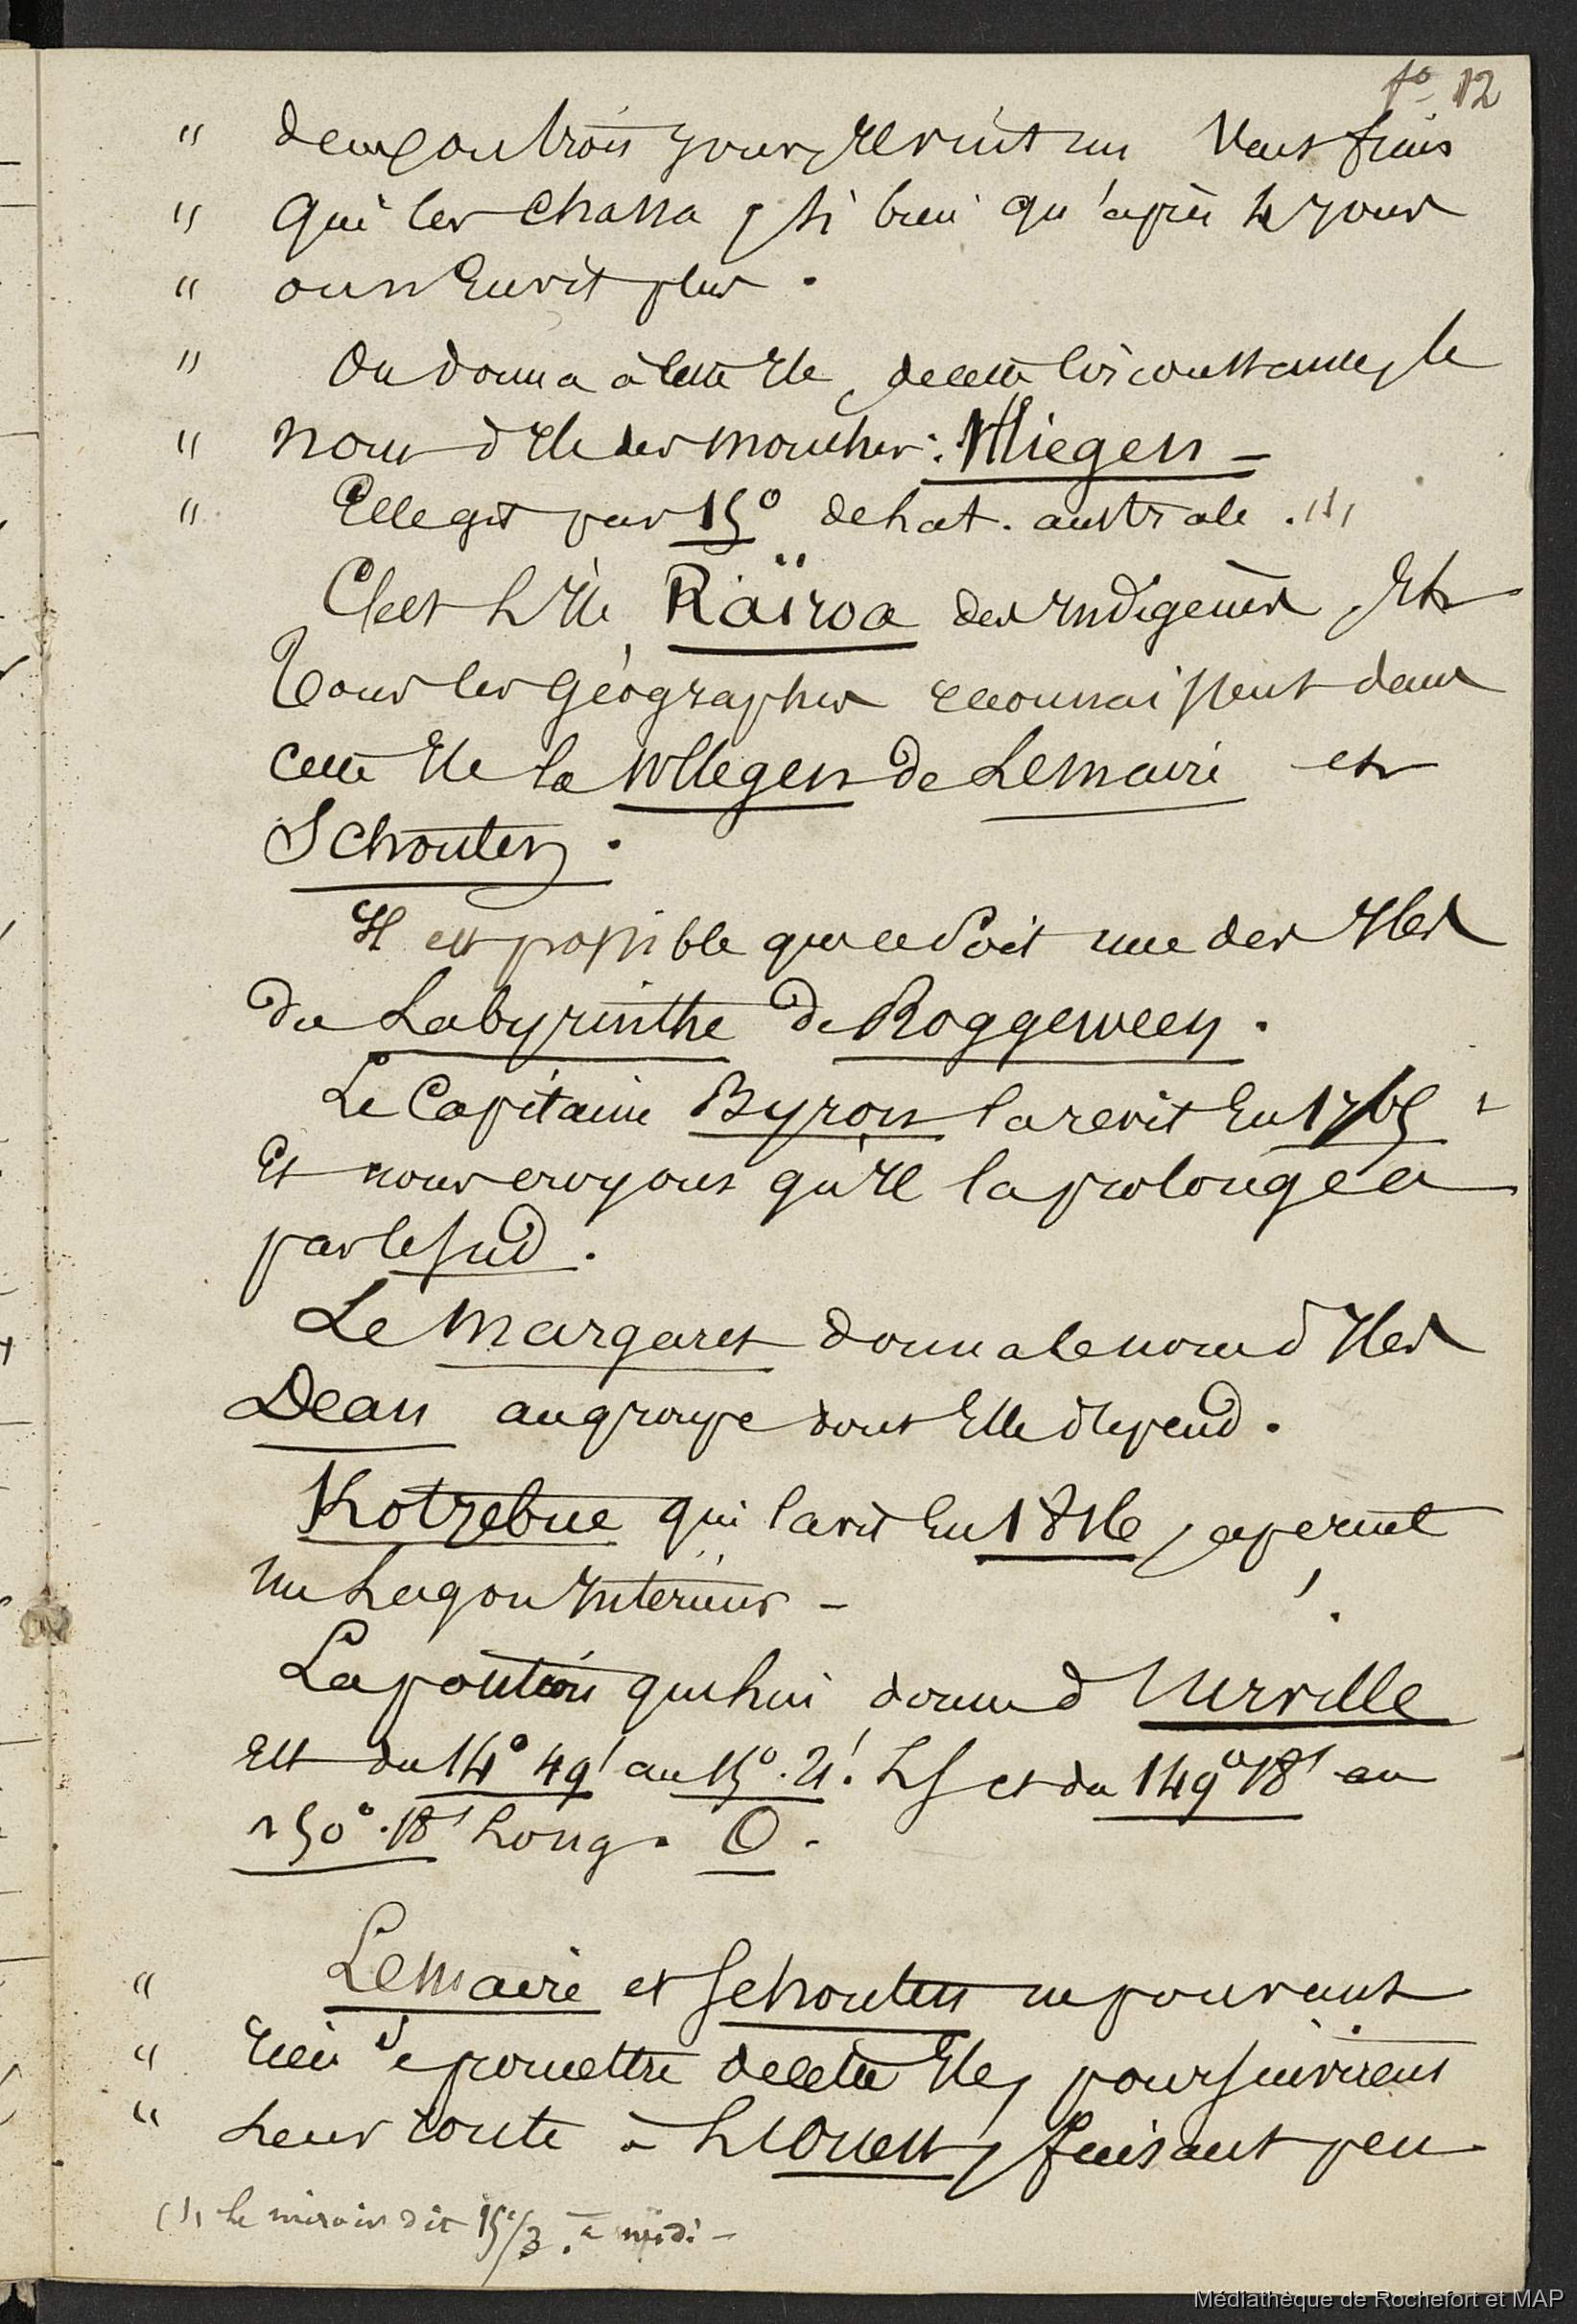 fo 12
" deux ou trois jours, il vint un Vent frais
" qui les chassa, si bien qu'après 4 jours
" on n'en vit plus.
" On donna à cette Ile, de cette Circonstance, le
" nom d'Ile des mouches: Vlliegen -
" Elle gît par 15° de Lat. australe. (1)
C'est L'Ile Raïroa des Indigènes, Et
Tous les Géographes reconnaissent dans
cette Ile la Wllegen de Lemaire et
Schouten.
Il est possible que ce Soit une des Iles
du Labyrinthe de Roggeween.
Le Capitaine Byron la revit En 1765
Et nous croyons qu'Il la prolongea
par le Sud.
Le Margaret donna le nom d'Iles
Dean au groupe dont Elle dépend.
Kotzebue qui la vit En 1816, aperçut
un Lagon Intérieur -
La position que Lui donne d'Urville
Est du 14° 49' au 15°. 21'. LS et du 149° 18' au
150°. 18' Long. O.
" Lemaire et Schouten ne pouvant
" rien se promettre de cette Ile, poursuivirent
" Leur route à L'Ouest, faisant peu
(1) Le miroir dit 15°/3. à midi -
Médiathèque de Rochefort et MAP